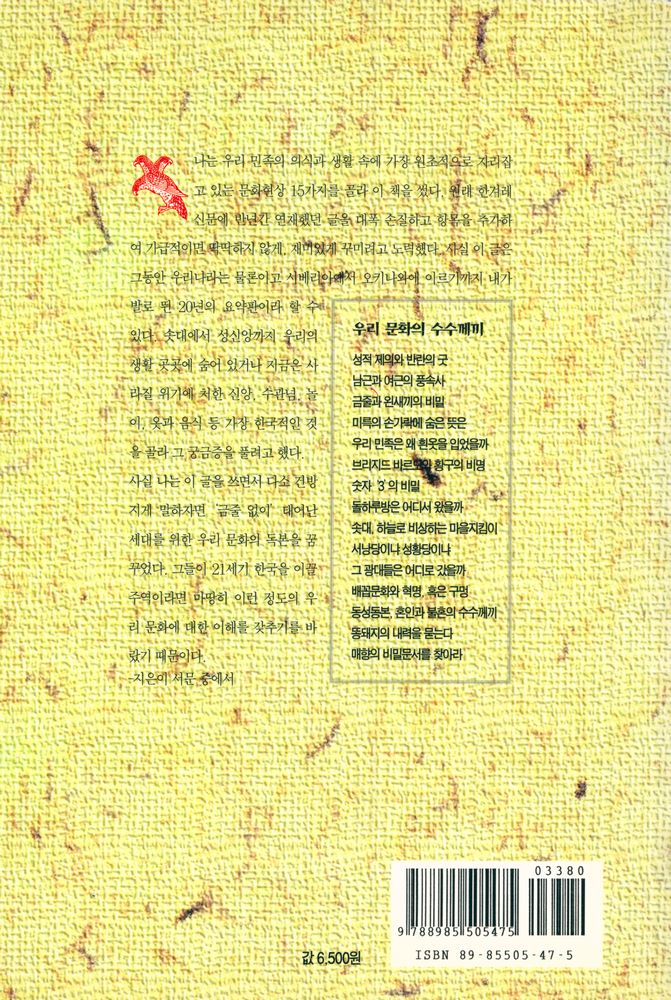 나는 우리 민족의 의식과 생활 속에 가장 원초적으로 자리잡
고 있는 문화현상 15가지를 골라 이 책을 썼다. 원래 한겨레
신문에 만년간 연재했던 글을 대폭 손질하고 항목을 추가하
여 가급적이면 딱딱하지 않게, 재미있게 꾸미려고 노력했다. 사실 이 글은
그동안 우리나라는 물론이고 시베리아에서 오키나와에 이르기까지 내가
발로 뛴 20년의 요약판이라 할 수
있다. 솟대에서 성신앙까지 우리의
생활 곳곳에 숨어 있거나 지금은 사
라질 위기에 처한 신앙, 수관념, 놀
이, 옷과 음식 등 가장 한국적인 것
을 골라 그 궁금증을 풀려고 했다.
사실 나는 이 글을 쓰면서 다소 건방
지게 말하자면 '금줄 없이' 태어난
세대를 위한 우리 문화의 독본을 꿈
꾸었다. 그들이 21세기 한국을 이끌
주역이라면 마땅히 이런 정도의 우
리 문화에 대한 이해를 갖추기를 바
랐기 때문이다.
-지은이 서문 중에서
우리 문화의 수수께끼
성적 제의와 반란의 굿
남근과 여근의 풍속사
금줄과 왼새끼의 비밀
미륵의 손가락에 숨은 뜻은
우리 민족은 왜 흰옷을 입었을까
브리지드 바르도와 황구의 비명
숫자 '3'의 비밀
돌하루방은 어디서 왔을까
솟대, 하늘로 비상하는 마을지킴이
서낭당이냐 성황당이냐
그 광대들은 어디로 갔을까
배꼽문화와 혁명, 혹은 구멍
동성동본, 혼인과 불혼의 수수께끼
똥돼지의 내력을 묻는다
매향의 비밀문서를 찾아라
03380
9 788985 505475
ISBN 89-85505-47-5
값 6,500원